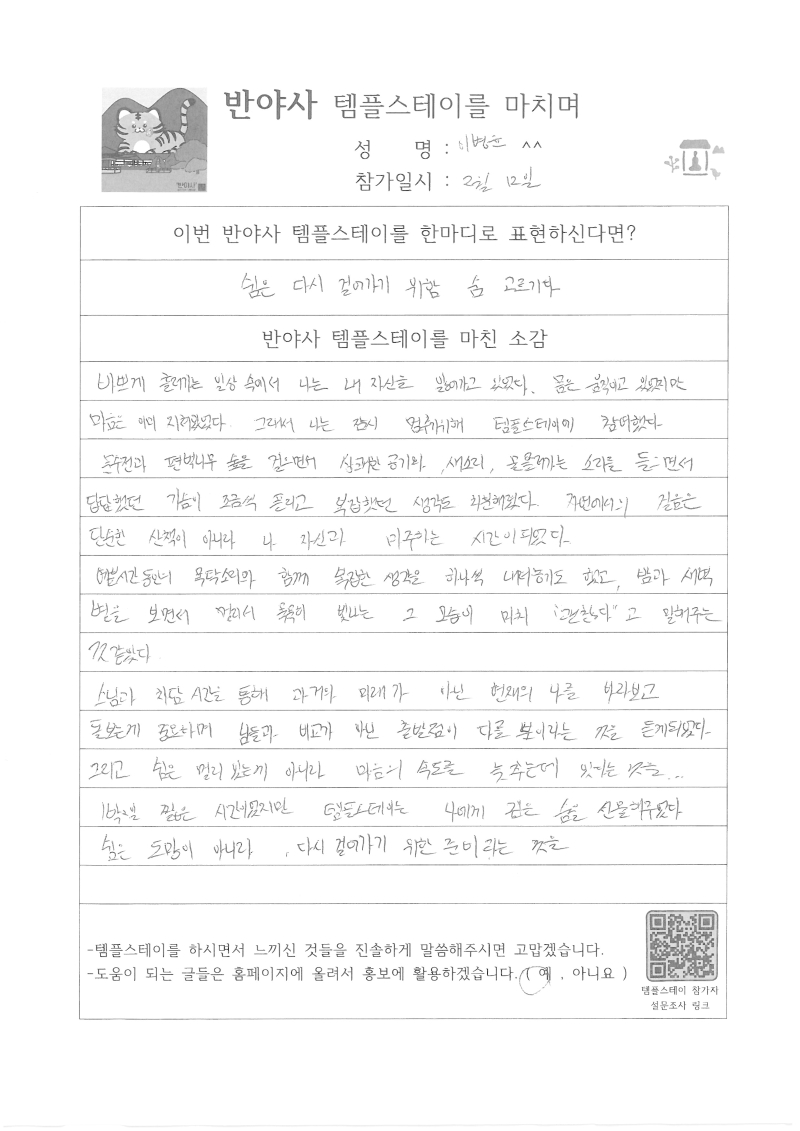 반야사 템플스테이를 마치며
성 명 : 이병윤 ^^
참가일시 : 2월 12일
이번 반야사 템플스테이를 한마디로 표현하신다면?
쉼은 다시 걸어가기 위함 숨 고르기다
반야사 템플스테이를 마친 소감
바쁘게 흘러가는 일상 속에서 나는 내 자신을 잃어가고 있었다. 몸은 움직이고 있었지만
마음은 이미 지쳐있었다. 그래서 나는 잠시 멈추기위해 템플스테이에 참여했다
편백나무 숲을 걸으면서 상쾌한 공기와, 새소리, 물흘러가는 소리를 들으면서
답답했던 가슴이 조금씩 풀리고 복잡했던 생각도 차분해졌다. 자연에서의 걸음은
단순한 산책이 아니라 나 자신과 마주하는 시간이 되었다.
예불시간 동안의 목탁소리와 함께 복잡한 생각을 하나씩 내려놓기도 했고, 밤과 새벽
별을 보면서 멀리서 묵묵히 빛나는 그 모습이 마치 "괜찮다"고 말해주는
것 같았다
스님과 차담 시간을 통해 과거와 미래가 아닌 현재의 나를 바라보고
돌보는게 중요하며 남들과 비교가 아닌 출발점이 다를 뿐이라는 것을 듣게되었다.
그리고 쉼은 멀리 있는게 아니라 마음의 속도를 늦추는데 있다는 것을...
1박2일 짧은 시간이었지만 템플스테이는 나에게 깊은 숨을 선물해주었다
쉼은 도망이 아니라, 다시 걸어가기 위한 준비라는 것을
-템플스테이를 하시면서 느끼신 것들을 진솔하게 말씀해주시면 고맙겠습니다.
-도움이 되는 글들은 홈페이지에 올려서 홍보에 활용하겠습니다. ( 예 , 아니요 )
템플스테이 참가자
설문조사 링크